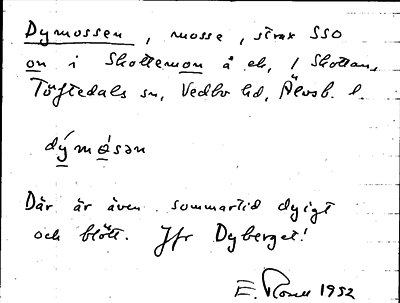 Dymossen, mosse, strax SSO
on i Skottemon å ek, / Skottan,
Töftedals sn, Vedbo hd, Älvsb. l.
dýmåsən
Där är även sommartid dyigt
och blött. Jfr Dyberget!
E. 1952